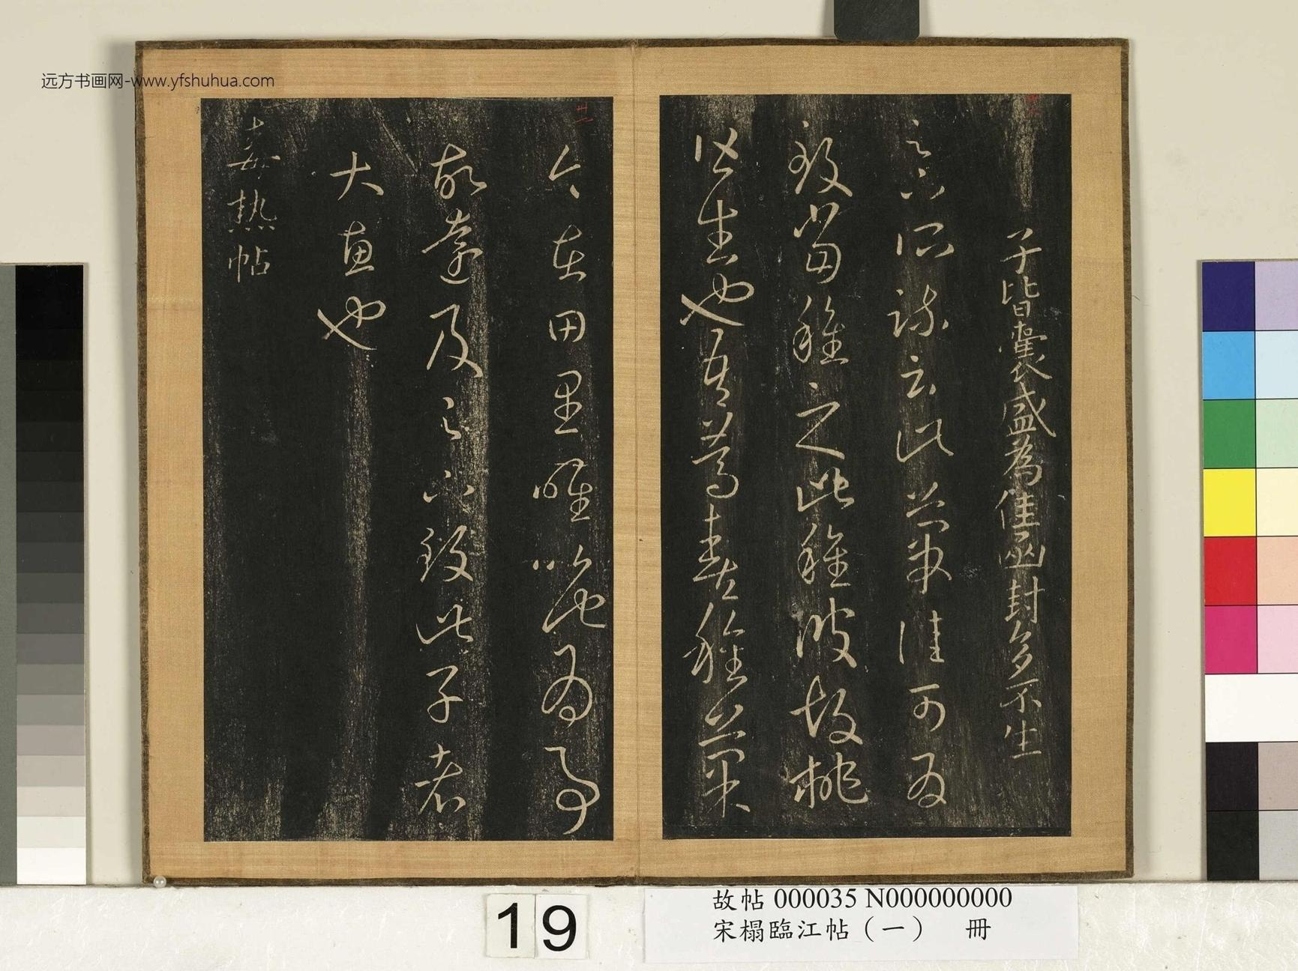 远方书画网-www.yfshuhua.com
子皆囊盛為佳函封多不生
足下所疏云此菓佳可為
致當種之此種彼胡桃
皆生也吾篤喜種菓
今在田里唯以此為事
故遠及足下致此子者
大惠也
毒热帖
19
故帖 000035 N000000000
宋榻臨江帖（一） 冊